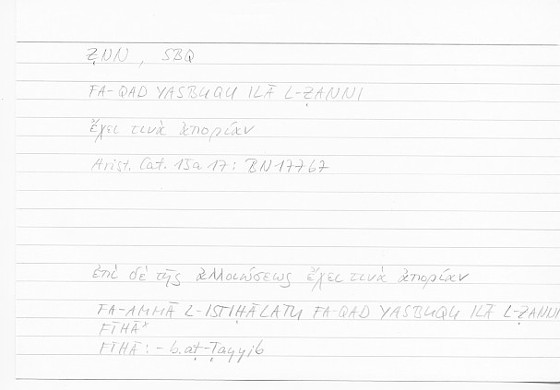 ẒNN, SBQ
FA-QAD YASBUQU ILĀ L-ẒANNI
ἔχει τινὰ ἀπορίαν
Arist. Cat. 15a17: BN 177b7
ἐπὶ δὲ τῆς ἀλλοιώσεως ἔχει τινὰ ἀπορίαν
FA-AMMĀ L-ISTIḤĀLATU FA-QAD YASBUQU ILĀ L-ẒANNI
FĪHĀ*
FĪHĀ: - b.aṭ-Ṭayyib